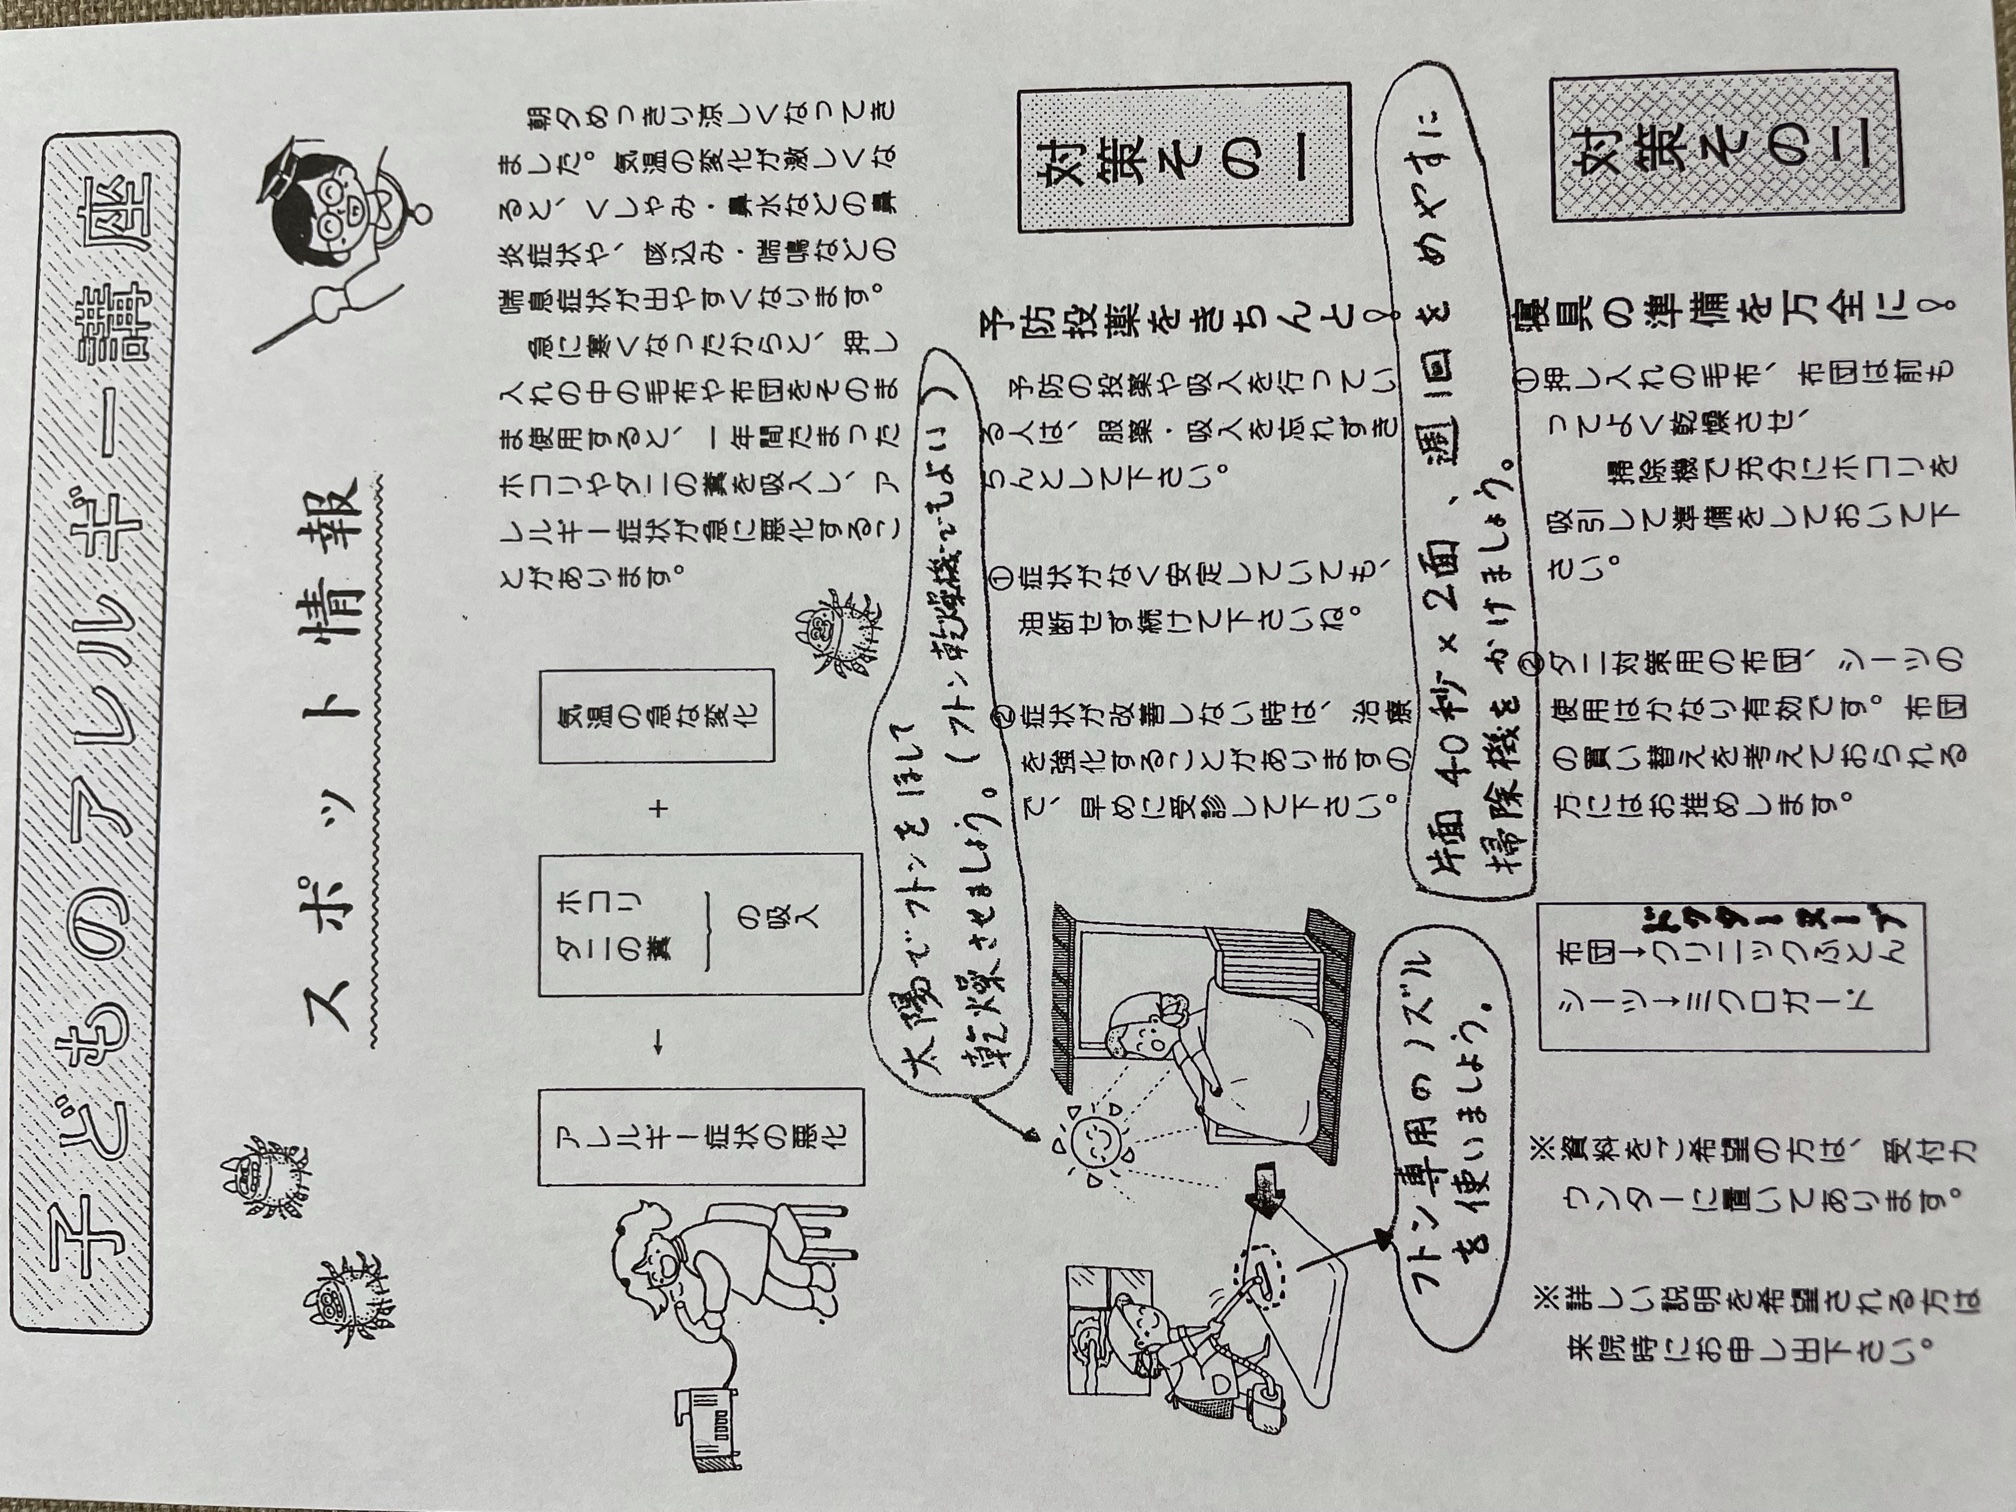 子どものアレルギー講座
スポット情報
朝夕めっきり涼しくなってき
ました。気温の変化が激しくな
ると、くしゃみ・鼻水などの鼻
炎症状や、咳込み・喘鳴などの
喘息症状が出やすくなります。
急に寒くなったからと、押し
入れの中の毛布や布団をそのま
ま使用すると、一年間たまった
ホコリやダニの糞を吸入し、ア
レルギー症状が急に悪化するこ
とがあります。
気温の急な変化
+
ホコリ
ダニの糞
の吸入
↓
アレルギー症状の悪化
対策その一
予防投薬をきちんと!
予防の投薬や吸入を行ってい
る人は、服薬・吸入を忘れずき
ちんとして下さい。
①症状がなく安定していても、
油断せず続けて下さいね。
②症状が改善しない時は、治療
を強化することがありますの
で、早めに受診して下さい。
太陽でフトンをほして
乾燥させましょう。(フトン乾燥機でもよい)
片面40秒×2面、週1回をめやすに
掃除機をかけましょう。
フトン専用のノズル
を使いましょう。
対策その二
寝具の準備を万全に!
①押し入れの毛布、布団は前も
ってよく乾燥させ、
掃除機で充分にホコリを
吸引して準備をしておいて下
さい。
②ダニ対策用の布団、シーツの
使用はかなり有効です。布団
の買い替えを考えておられる
方にはお推めします。
ドクタースープ
布団→クリニックふとん
シーツ→ミクロガード
※資料をご希望の方は、受付カ
ウンターに置いてあります。
※詳しい説明を希望される方は
来院時にお申し出下さい。